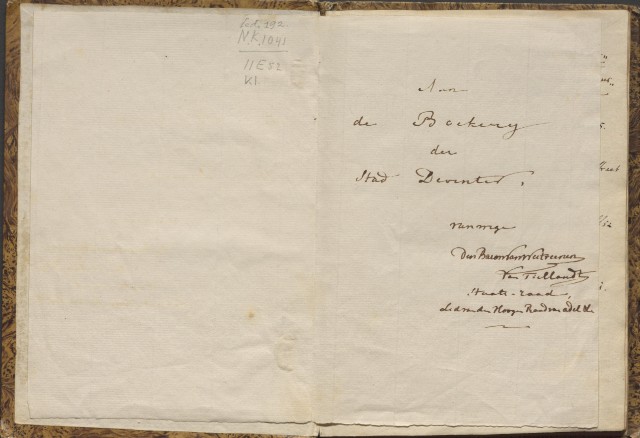 Ind. 192
N.k. 1041
11 E 52
KI
Aan
de Boekery
der
Stad Deventer,
van wege
Den Baron van Westreenen
Van Tiellandt
Staats-raad,
Lid van den Hoogen Raad van adel &c